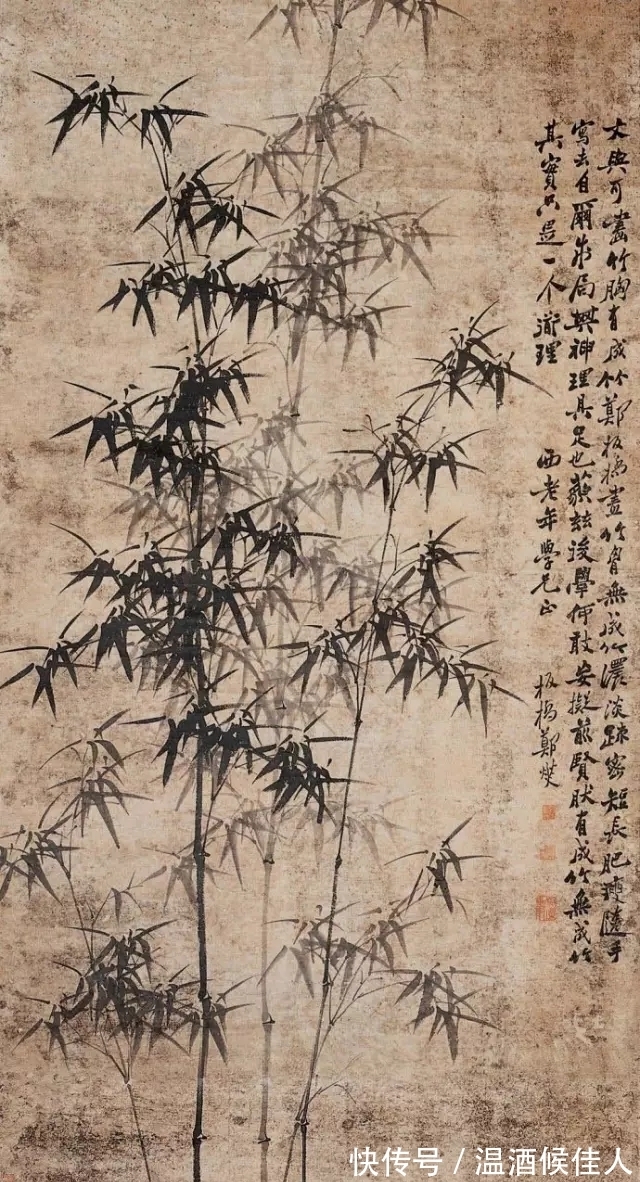 文與可畫竹胸有成竹鄭板橋畫竹胷無成竹濃淡疎密短長肥瘦隨手
寫去自爾成局其神理具足也藐兹後學何敢妄擬前賢然有成竹無成竹
其實只是一个道理
西老年學兄正
板橋鄭燮
快传号/温酒候佳人